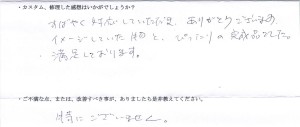 ・カスタム、修理した感想はいかがでしょうか？
すばやく対応していただき、ありがとうございます
イメージしていた物と、ぴったりの完成品でした。
満足しております。
・ご不満な点、または、改善すべき事が、ありましたら是非教えてください。
特にございません。